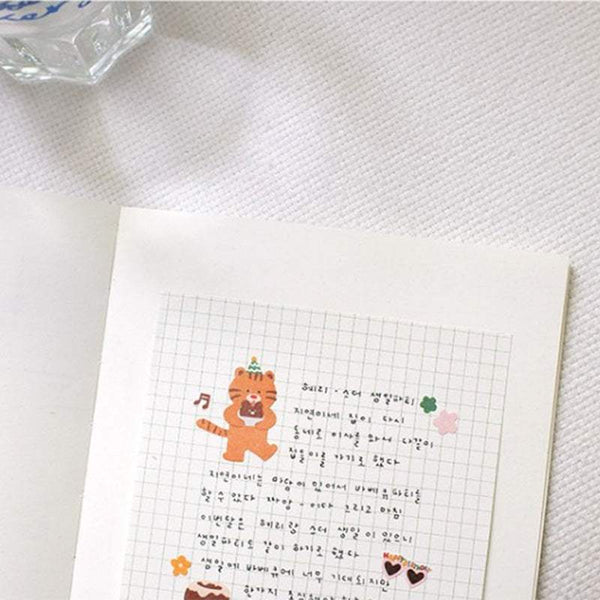 헤리·스더 생일파티
지연이네 집이 다시
동네로 이사를 와서 다같이
집들이를 가기로 했다
지연이네는 마당이 있어서 바베큐파티를
할 수 있다 짜앙-이다 그리고 마침
이번달은 헤리랑 스더 생일이 있으니
생일파티도 같이 하기로 했다
HAPPY BIRTHDAY
생일에 바베큐에 너무 기대되지만
한가지